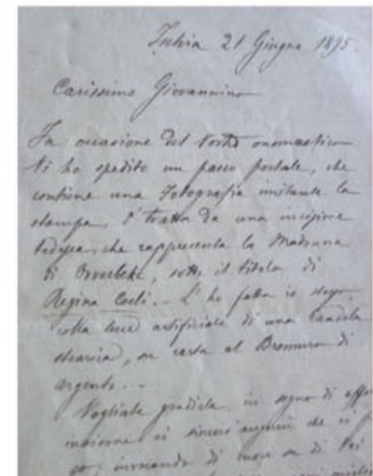 Ischia 21 Giugno 1895.
Carissimo Giovannino
In occasione del Vostro onomastico
Vi ho spedito un pacco postale, che
contiene una Fotografia imitante la
stampa. È tratta da una incisione
tedesca, che rappresenta la Madonna
di Overbeke, sotto il titolo di
Regina Coeli... L'ho fatta io stesso,
colla luce artificiale di una candela
stearica, su carta al Bromuro di
argento...
Vogliate gradirla, in segno di
ai sinceri augurii che vi
invocando di cuore su di Voi